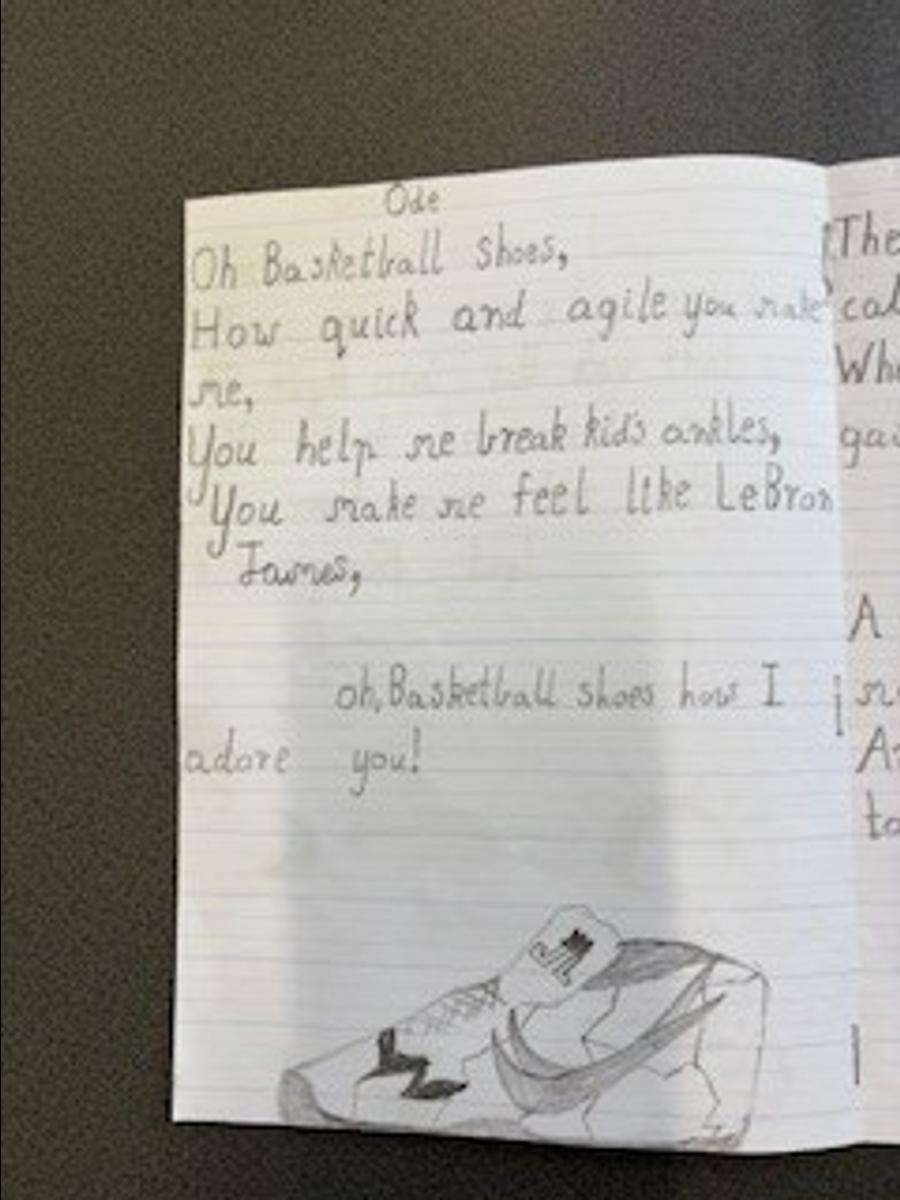 Ode
Oh Basketball shoes,
How quick and agile you make
me,
You help me break kid's ankles,
You make me feel like LeBron
James,
oh, Basketball shoes how I
adore you!
The
A